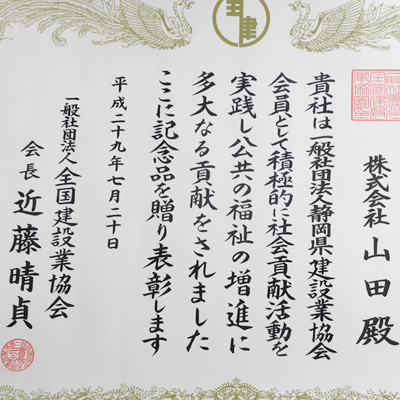 株式会社 山田 殿
貴社は一般社団法人静岡県建設業協会
会員として積極的に社会貢献活動を
実践し公共の福祉の増進に
多大なる貢献をされました
ここに記念品を贈り表彰します
平成二十九年七月二十日
一般社団法人全国建設業協会
会長 近藤晴貞